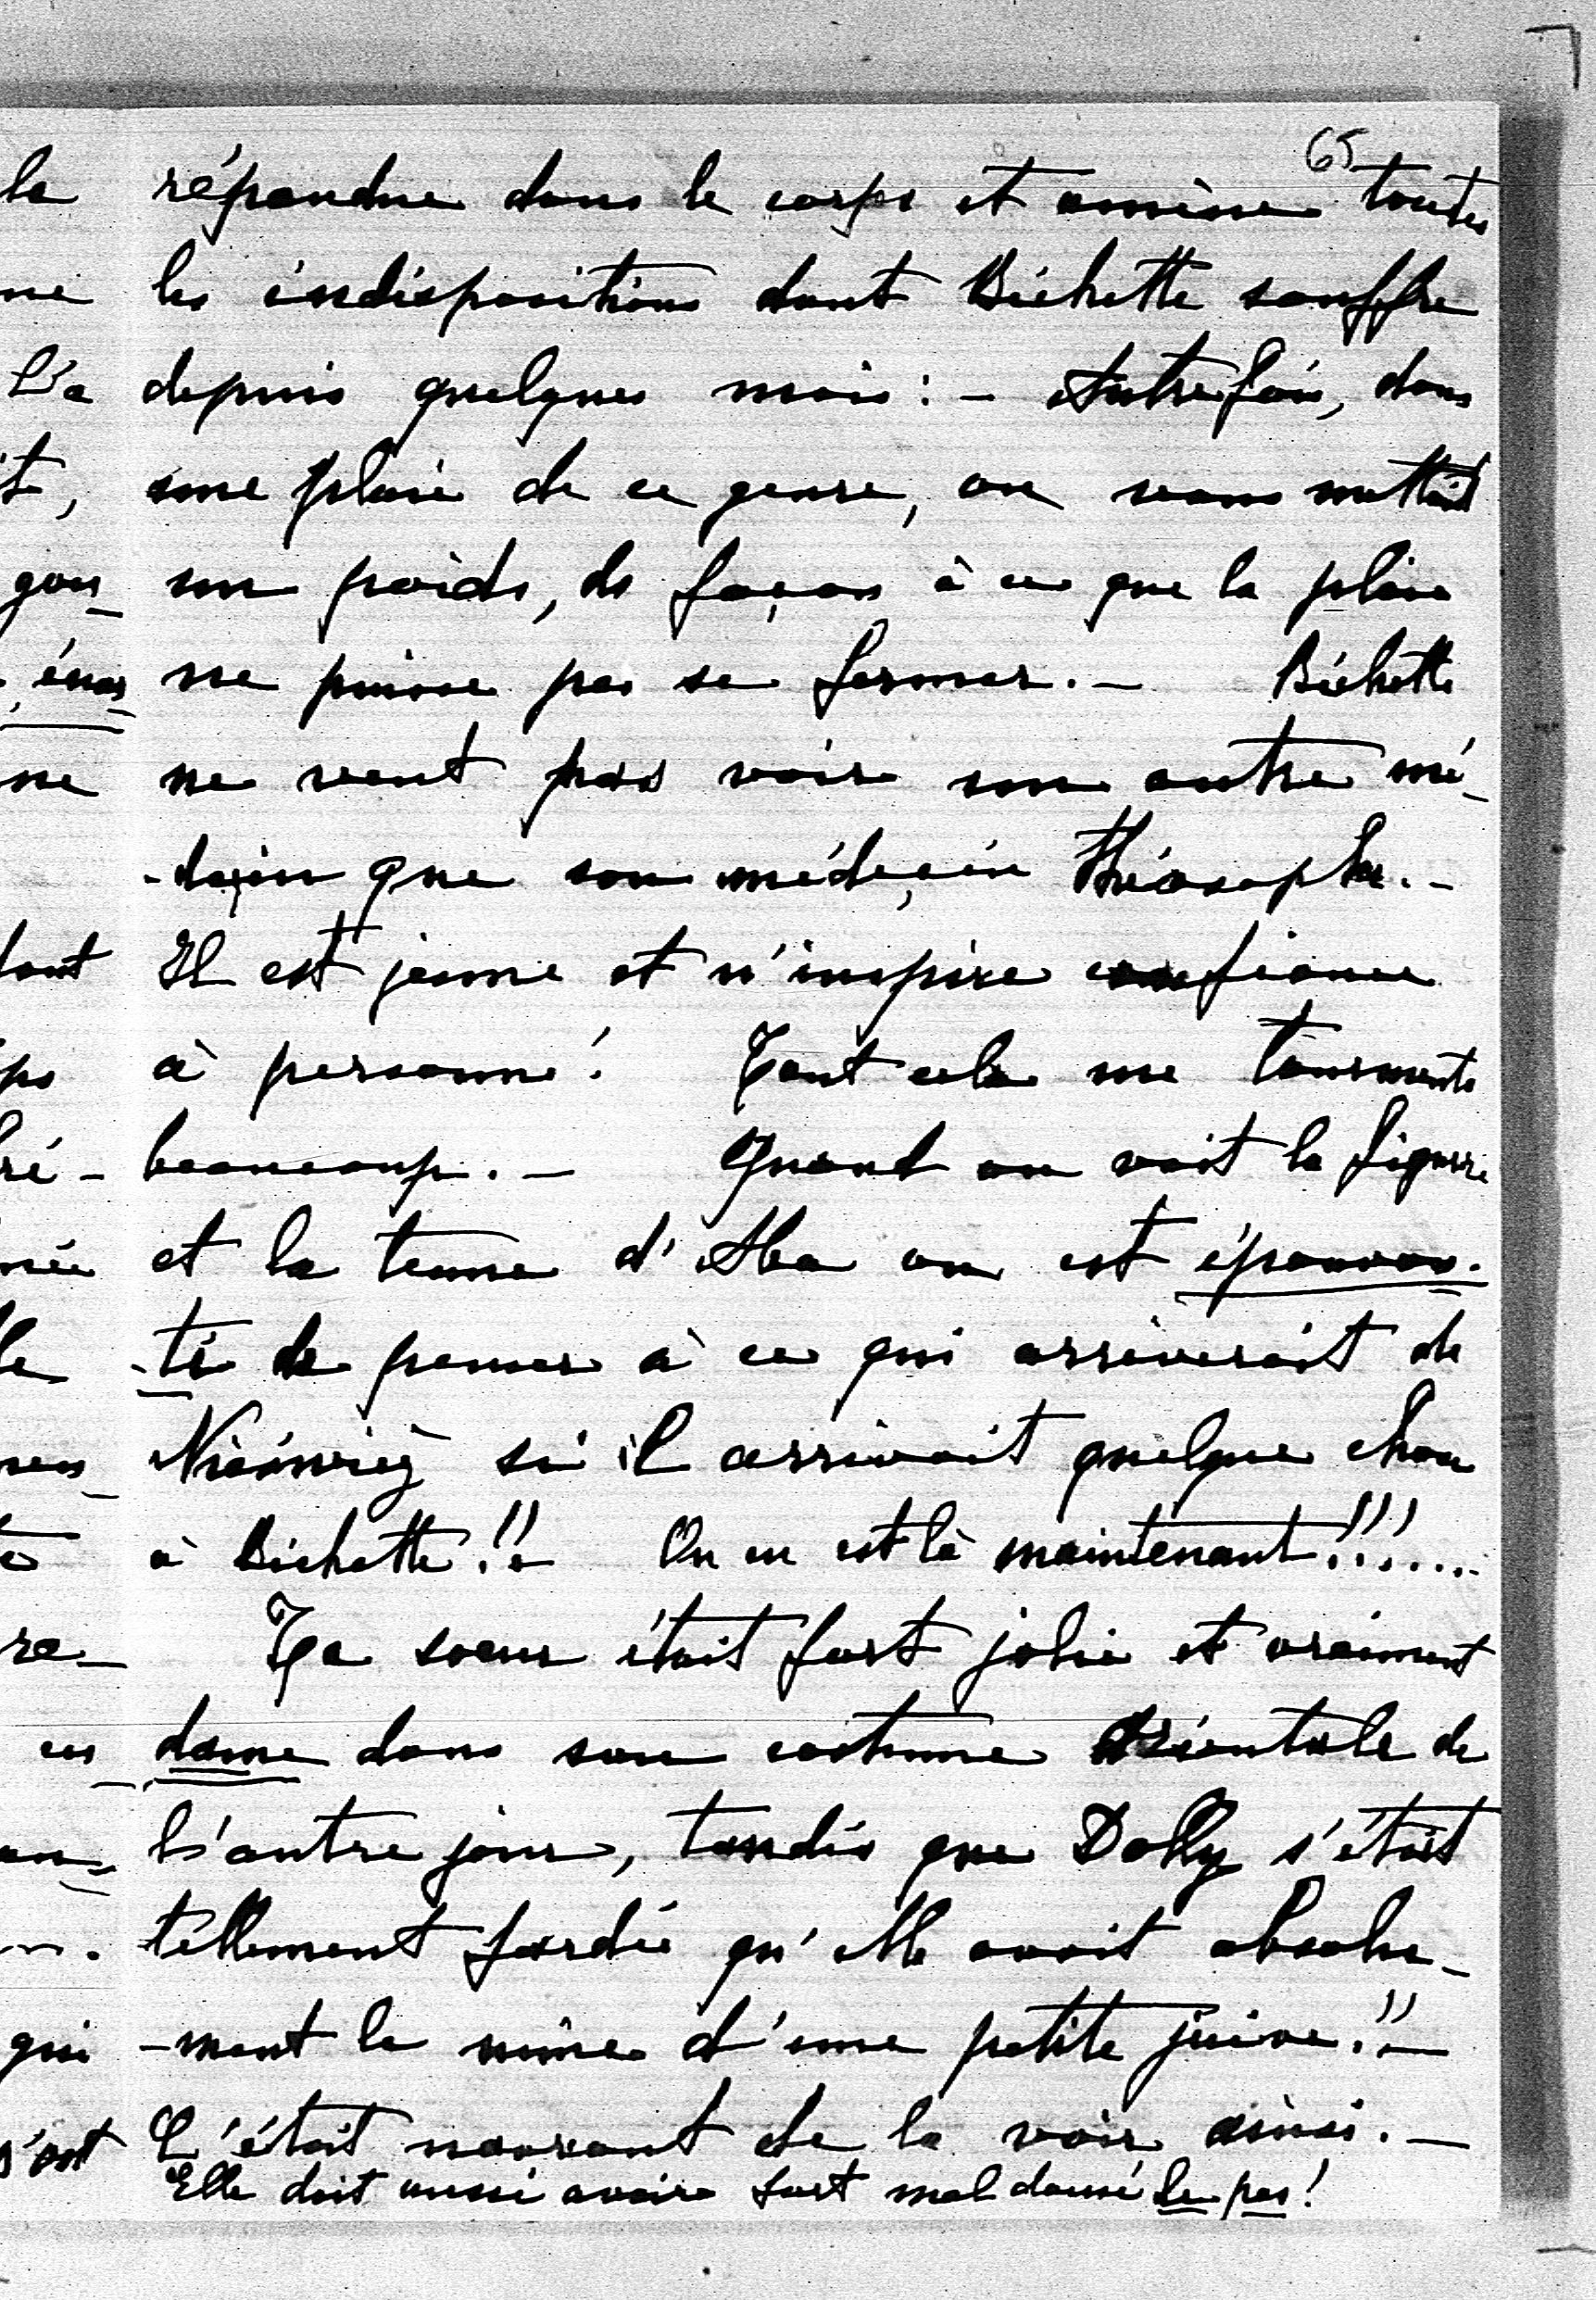 65
répandue dans le corps et amène toutes
les indispositions dont Bichette souffre
depuis quelques mois : - Autrefois, dans
une plaie de ce genre, on vous mettait
un poids, de façon à ce que la plaie
ne puisse pas se fermer. - Bichette
ne veut pas voir un autre mé-
-deçin que son médeçin théosophe. -
Il est jeune et n'inspire confiance
à personne! Tout cela me tourmente
beaucoup. - Quand on voit la figure
et la tenue d' on est épouvan-
-té de penser à ce qui arriverait de
si il arrivait quelque chose
à Bichette!! On en est là maintenant!!!....
Ta soeur était fort jolie et vraiment
dame dans son costume Orientale de
l'autre jour, tandis que Dolly s'était
tellement fardée qu'elle avait absolu-
-ment la mine d'une petite juive!! -
C'était navrant de la voir ainsi. -
Elle doit aussi avoir fort mal dansé le pas!